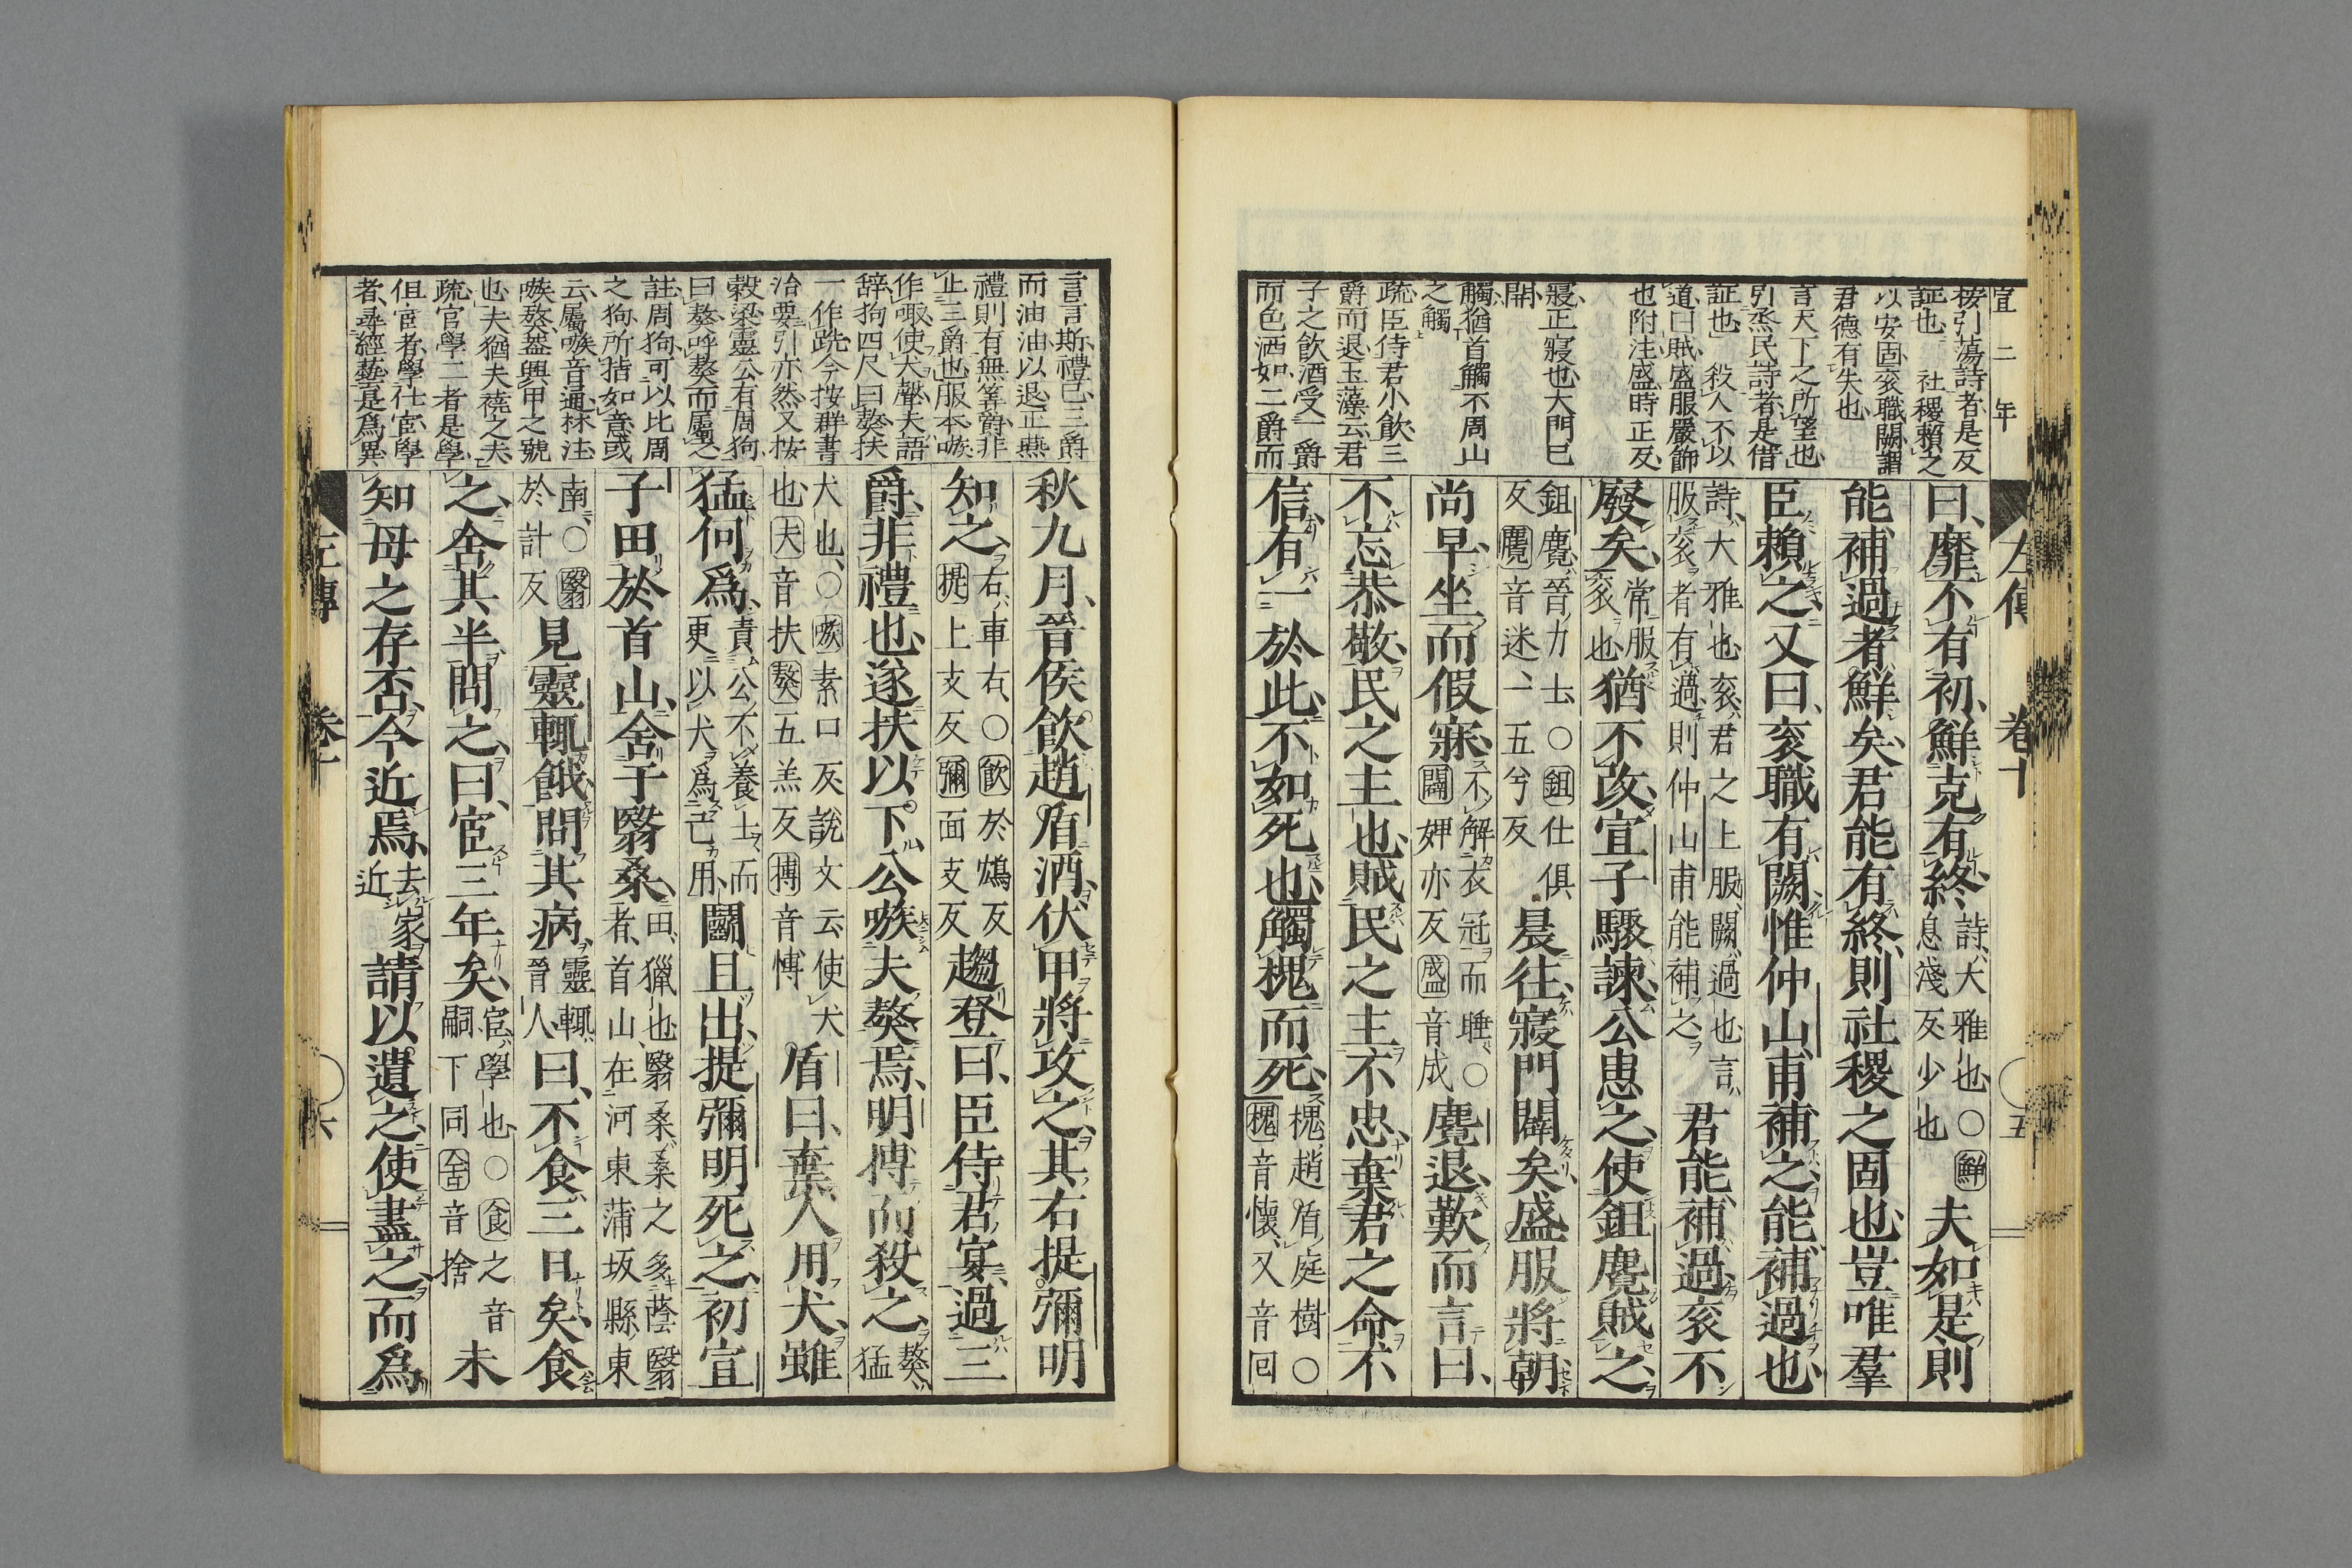 宣二年
左傳 卷十 五
按引蕩詩者是反
証也 社稷賴之
以安固袞職闕謂
君德有失也
言天下之所望也
引烝民詩者是借
証也 殺人不以
道曰賊盛服嚴飾
也附注盛時正反
寢正寢也大門已
開
觸猶首觸不周山
之觸
疏臣侍君小飲三
爵而退玉藻云君
子之飲酒受一爵
而色洒如二爵而
曰、靡不有初、鮮克有終、詩、大雅也、○鮮息淺反少也夫如是則
能補過者鮮矣、君能有終、則社稷之固也、豈唯羣
臣賴之、又曰、袞職有闕、惟仲山甫補之、能補過也、
詩、大雅也、袞、君之上服、闕、過也、言、服袞者有過、則仲山甫能補之君能補過、袞不
廢矣、常服袞也猶不改、宣子驟諫、公患之、使鉏麑賊之、
鉏麑、晉力士、○鉏仕俱反麑音迷、一、五兮反晨往、寢門闢矣、盛服將朝、
尚早、坐而假寐、不解衣冠而睡、○闢婢亦反盛音成麑退、歎而言曰、
不忘恭敬、民之主也、賊民之主、不忠、棄君之命、不
信、有一於此、不如死也、觸槐而死、槐、趙盾庭樹○槐音懷、又音回
言言斯禮已三爵
而油油以退正燕
禮則有無筭爵非
止三爵也服本嗾
作呶使犬聲夫語
辭狗四尺曰獒扶
一作跣今按群書
治要引亦然又按
穀梁靈公有周狗
曰獒呼獒而屬之
註周狗可以比周
之狗所指如意或
云屬嗾音通林注
嗾獒葢興甲之號
也夫猶夫襓之夫
疏官學二者是學
但宦者學仕宦學
者尋經藝是爲異
秋九月、晉侯飲趙盾酒、伏甲將攻之、其右提彌明
知之、右、車右、○飲於鴆反提上支反彌面支反趨登曰、臣侍君宴、過三
爵、非禮也、遂扶以下、公嗾夫獒焉、明搏而殺之、獒猛
犬也、○嗾素口反說文云使犬也、夫音扶獒五羔反搏音博盾曰、棄人用犬、雖
猛何爲、責公不養士、而更以犬爲己用、鬭且出、提彌明死之、初宣
子田於首山、舍于翳桑、田、獵也、翳桑、桑之多蔭翳者、首山、在河東蒲坂縣東
南、○翳於計反見靈輒餓、問其病、靈輒、晉人曰、不食三日矣、食
之、舍其半、問之、曰、宦三年矣、宦、學也、○食之音嗣下同舍音捨未
知母之存否、今近焉、去家近請以遺之、使盡之、而爲
左傳 卷十 六